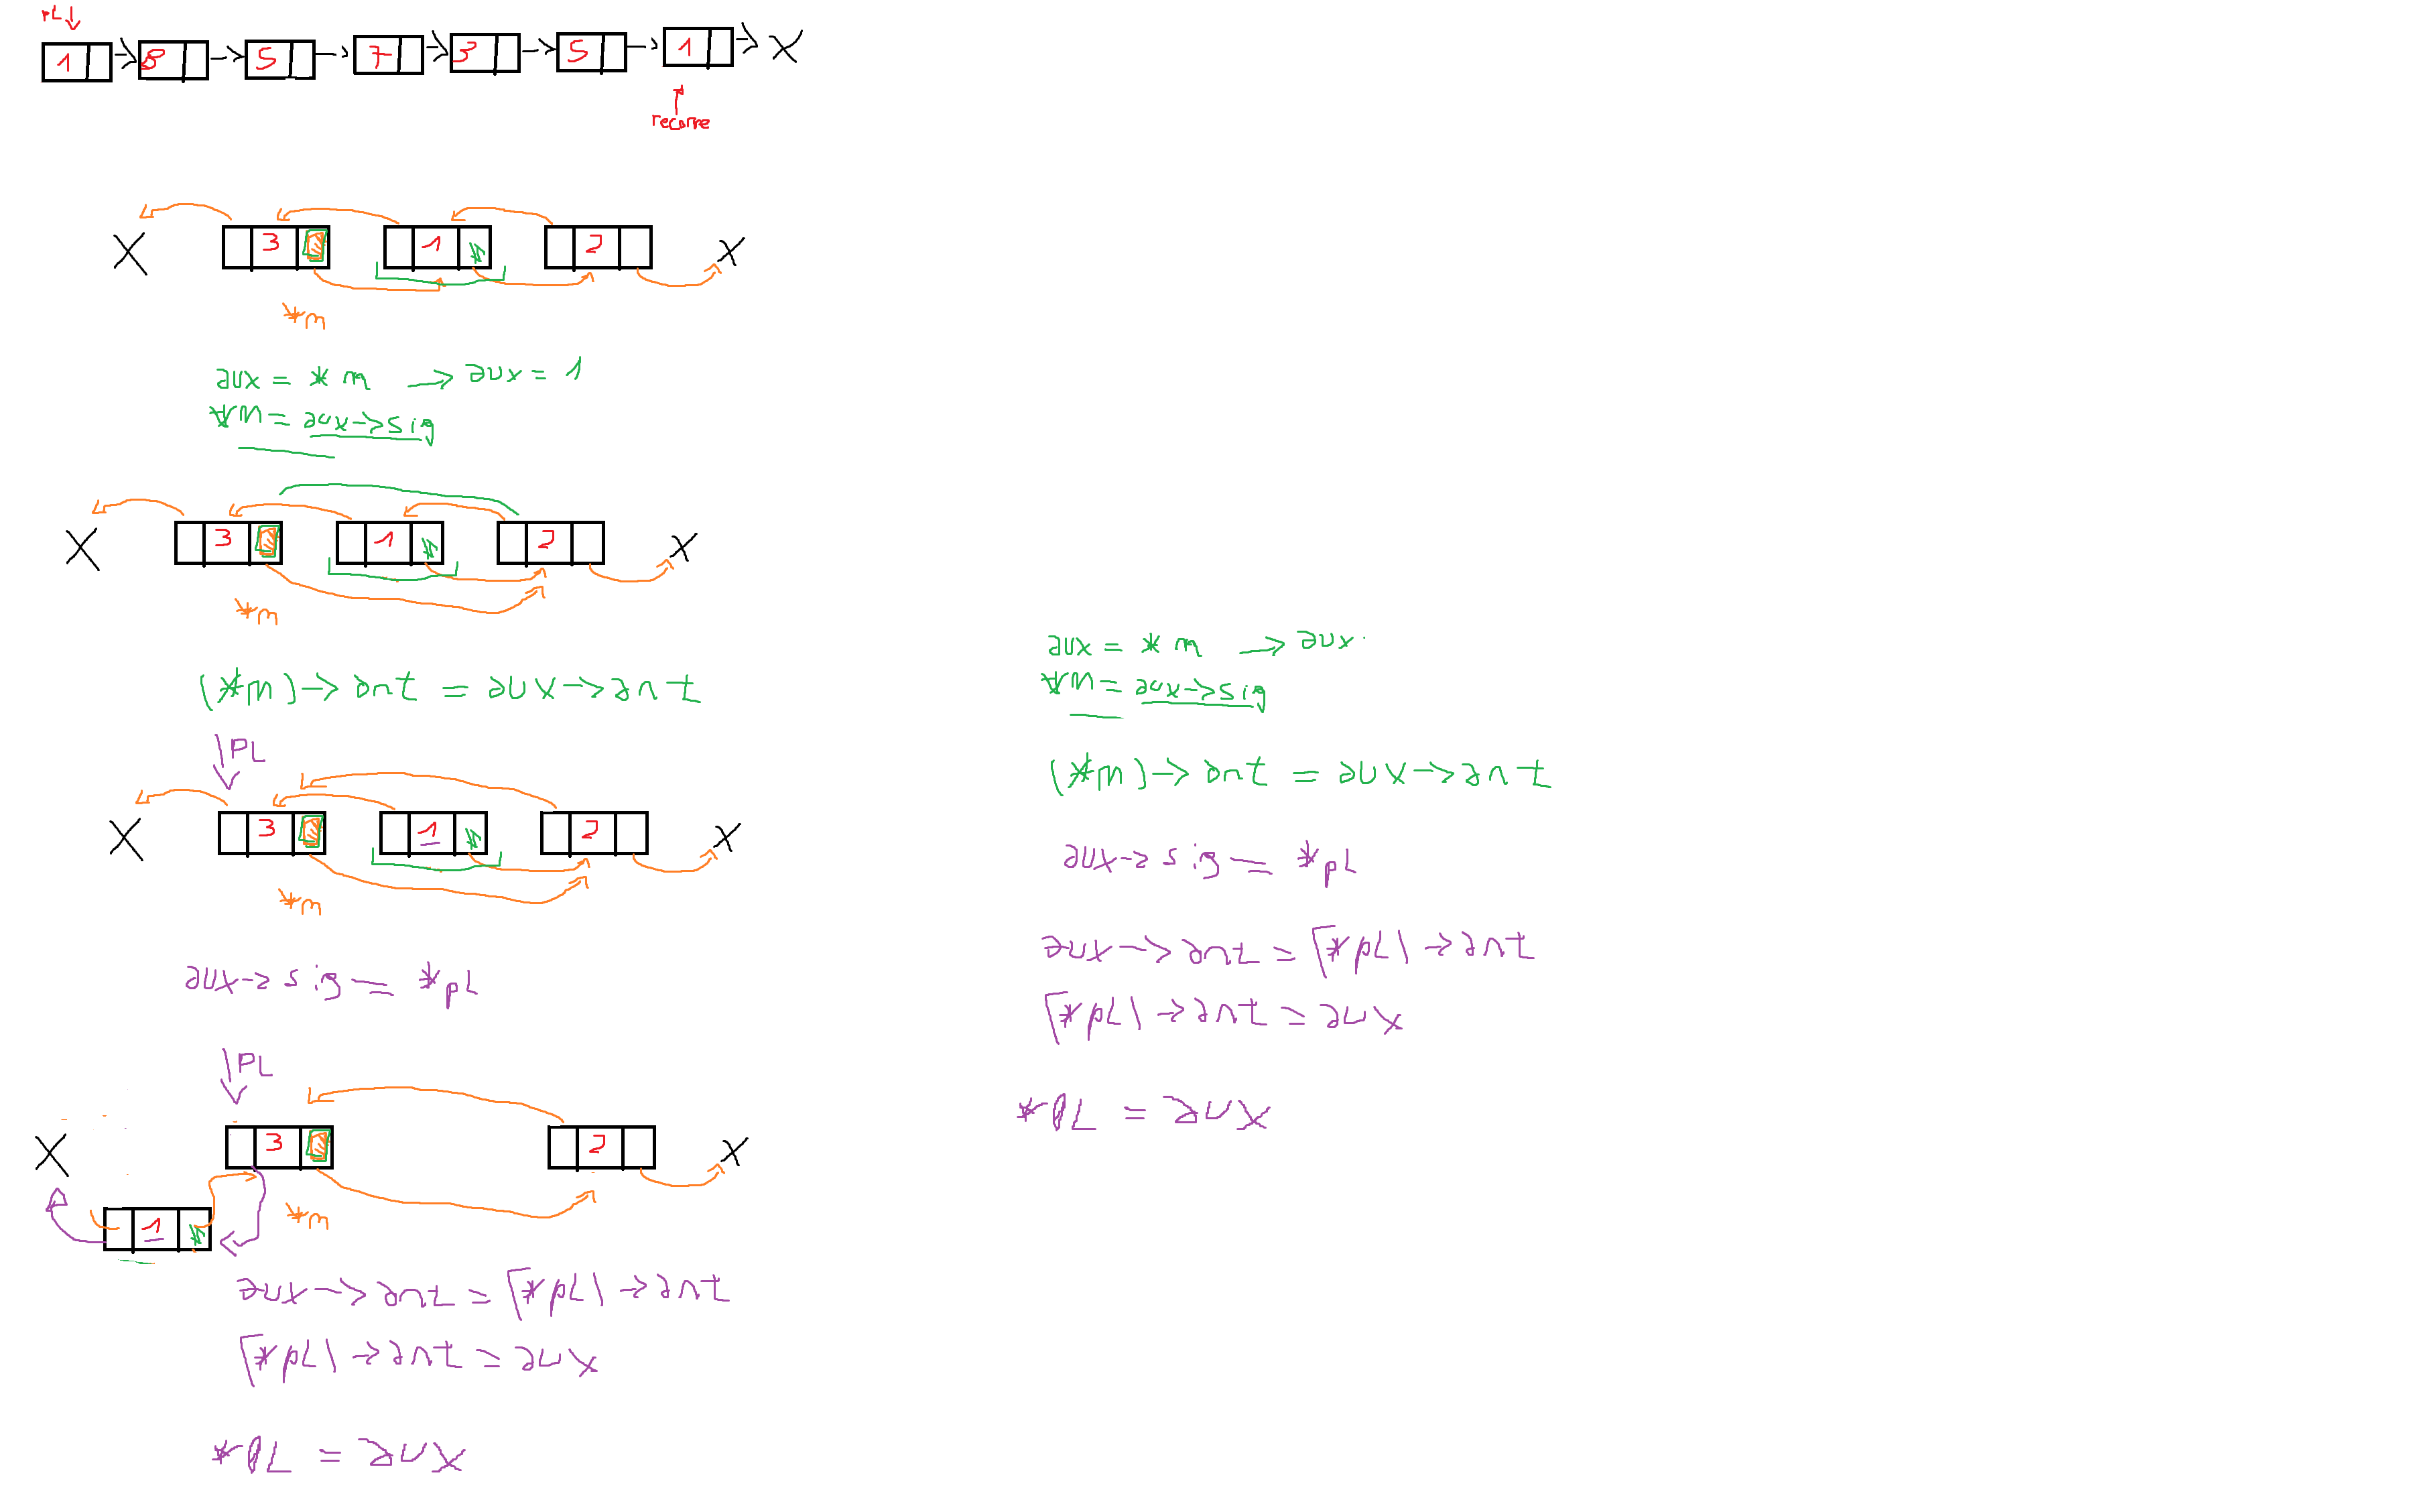 pL
1 8 5 7 3 5 1 X
recorre
X 3 1 2 X
*m
aux = *m → aux = 1
*m = aux->sig
X 3 1 2 X
*m
(*m)->ant = aux->ant
PL
X 3 1 2 X
*m
aux->sig = *pL
PL
X 3 2 X
1
*m
aux->ant = (*pL)->ant
(*pL)->ant = aux
*pL = aux
aux = *m → aux
*m = aux->sig
(*m)->ant = aux->ant
aux->sig = *pL
aux->ant = (*pL)->ant
(*pL)->ant = aux
*pL = aux